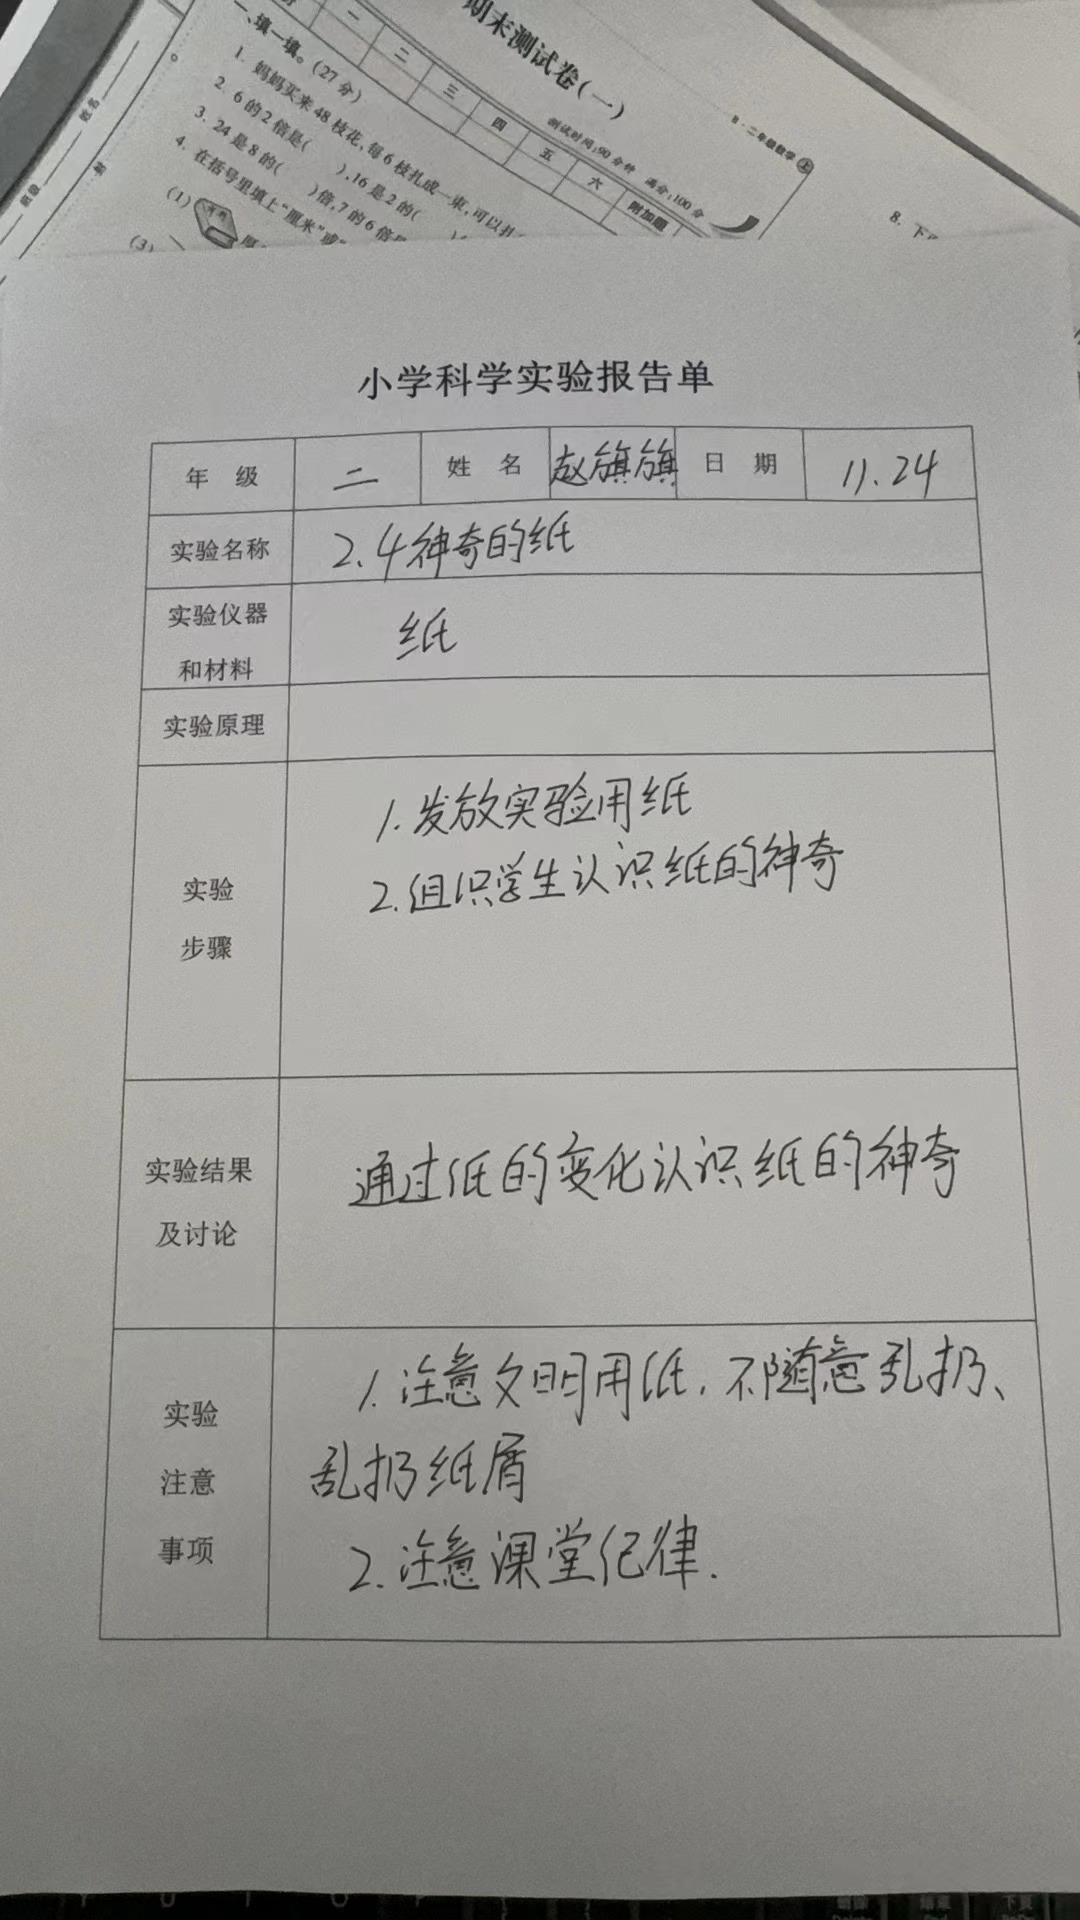 期末测试卷(一)
B·二年级数学 上
测试时间:90分钟 满分:100分
二 三 四 五 六 附加题
一、填一填。(27分)
1. 妈妈买来48枝花,每6枝扎成一束,可以扎
2. 6的2倍是( ),16是2的(
3. 24是8的( )倍,7的6倍是
4. 在括号里填上“厘米”或“
(1)
(3)
8. 下
姓名
班级
小学科学实验报告单
年 级 二 姓 名 赵旗旗 日 期 11.24
实验名称 2.4神奇的纸
实验仪器
和材料
纸
实验原理
实验
步骤
1.发放实验用纸
2.组识学生认识纸的神奇
实验结果
及讨论
通过纸的变化认识纸的神奇
实验
注意
事项
1.注意文明用纸.不随意乱扔、
乱扔纸屑
2.注意课堂纪律.